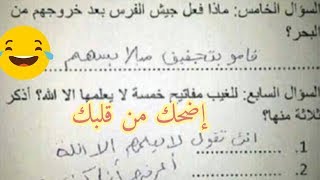 السؤال الخامس: ماذا فعل جيش الفرس بعد خروجهم من
البحر؟
قامو بتجفيف ملابسهم
السؤال السابع: للغيب مفاتيح خمسة لا يعلمها الا الله؟ أذكر
ثلاثة منها؟
إضحك من قلبك
1. انت تقول لا يعلمهم ألا الله
2.